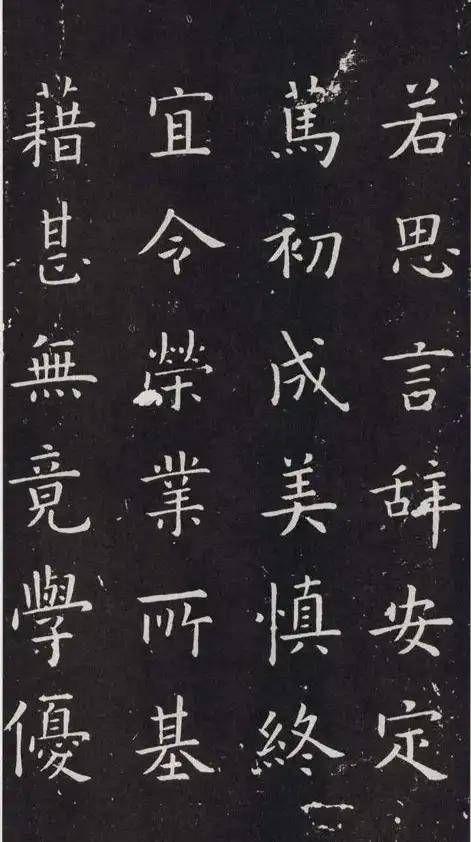 若思言辞安定
篤初成美慎終
宜令榮業所基
藉甚無竟學優